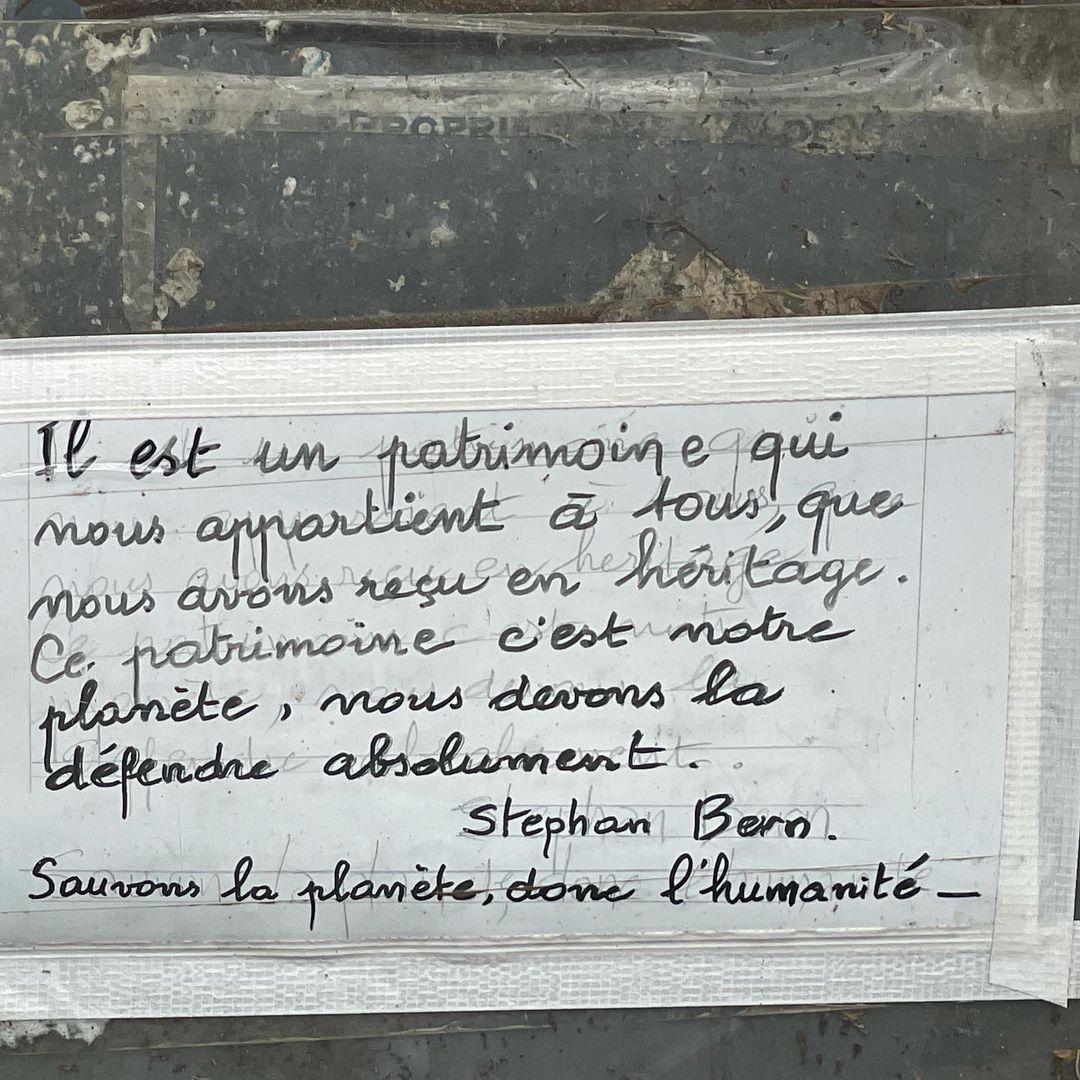 Il est un patrimoine qui
nous appartient à tous, que
nous avons reçu en héritage.
Ce patrimoine c'est notre
planète, nous devons la
défendre absolument.
Stephan Bern.
Sauvons la planète, donc l'humanité –